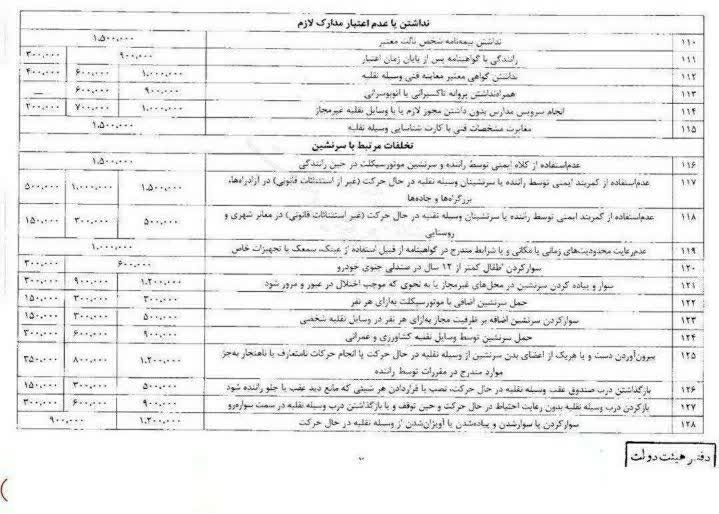 نداشتن یا عدم اعتبار مدارک لازم
۱۱۰ نداشتن بیمه‌نامه شخص ثالث معتبر ۱,۵۰۰,۰۰۰
۱۱۱ رانندگی با گواهینامه پس از پایان زمان اعتبار ۹۰۰,۰۰۰ ۳۰۰,۰۰۰
۱۱۲ نداشتن گواهی معتبر معاینه فنی وسیله نقلیه ۱,۰۰۰,۰۰۰ ۶۰۰,۰۰۰ ۴۰۰,۰۰۰
۱۱۳ همراه‌نداشتن پروانه تاکسیرانی یا اتوبوسرانی ۹۰۰,۰۰۰ ۶۰۰,۰۰۰ —
۱۱۴ انجام سرویس مدارس بدون داشتن مجوز لازم یا با وسایل نقلیه غیرمجاز ۱,۰۰۰,۰۰۰ ۷۰۰,۰۰۰ ۲۰۰,۰۰۰
۱۱۵ مغایرت مشخصات فنی با کارت شناسایی وسیله نقلیه ۱,۵۰۰,۰۰۰
تخلفات مرتبط با سرنشین
۱۱۶ عدم‌استفاده از کلاه ایمنی توسط راننده و سرنشین موتورسیکلت در حین رانندگی ۱,۵۰۰,۰۰۰
۱۱۷ عدم‌استفاده از کمربند ایمنی توسط راننده یا سرنشینان وسیله نقلیه در حال حرکت (غیر از استثنائات قانونی) در آزادراه‌ها، ۱,۵۰۰,۰۰۰ ۱,۰۰۰,۰۰۰ ۵۰۰,۰۰۰
بزرگراه‌ها و جاده‌ها
۱۱۸ عدم‌استفاده از کمربند ایمنی توسط راننده یا سرنشینان وسیله نقلیه در حال حرکت (غیر از استثنائات قانونی) در معابر شهری و ۵۰۰,۰۰۰ ۳۰۰,۰۰۰ ۱۵۰,۰۰۰
روستایی
۱۱۹ عدم‌رعایت محدودیت‌های زمانی یا مکانی و یا شرایط مندرج در گواهینامه از قبیل استفاده از عینک، سمعک یا تجهیزات خاص ۱,۰۰۰,۰۰۰
۱۲۰ سوارکردن اطفال کمتر از ۱۲ سال در صندلی جلوی خودرو ۶۰۰,۰۰۰ ۳۰۰,۰۰۰
۱۲۱ سوار و پیاده کردن سرنشین در محل‌های غیرمجاز یا به نحوی که موجب اختلال در عبور و مرور شود ۱,۲۰۰,۰۰۰ ۹۰۰,۰۰۰ ۳۰۰,۰۰۰
۱۲۲ حمل سرنشین اضافی با موتورسیکلت به‌ازای هر نفر ۳۰۰,۰۰۰ ۳۰۰,۰۰۰ ۱۵۰,۰۰۰
۱۲۳ سوارکردن سرنشین اضافه بر ظرفیت مجاز به‌ازای هر نفر در وسایل نقلیه شخصی ۵۰۰,۰۰۰ ۳۰۰,۰۰۰ ۱۵۰,۰۰۰
۱۲۴ حمل سرنشین توسط وسایل نقلیه کشاورزی و عمرانی ۹۰۰,۰۰۰ ۶۰۰,۰۰۰ ۳۰۰,۰۰۰
۱۲۵ بیرون‌آوردن دست و یا هریک از اعضای بدن سرنشین از وسیله نقلیه در حال حرکت یا انجام حرکات نامتعارف یا ناهنجار به‌جز ۱,۲۰۰,۰۰۰ ۸۰۰,۰۰۰ ۳۵۰,۰۰۰
موارد مندرج در مقررات توسط راننده
۱۲۶ بازگذاشتن درب صندوق عقب وسیله نقلیه در حال حرکت، نصب یا قراردادن هر شیئی که مانع دید عقب یا جلو راننده شود ۵۰۰,۰۰۰ ۳۰۰,۰۰۰ ۱۵۰,۰۰۰
۱۲۷ بازکردن درب وسیله نقلیه بدون رعایت احتیاط در حال حرکت و حین توقف و یا بازگذاشتن درب وسیله نقلیه در سمت سواره‌رو ۹۰۰,۰۰۰ ۶۰۰,۰۰۰ ۳۰۰,۰۰۰
۱۲۸ سوارکردن یا سوارشدن و پیاده‌شدن یا آویزان‌شدن از وسیله نقلیه در حال حرکت ۱,۲۰۰,۰۰۰ ۹۰۰,۰۰۰
دفتر هیئت دولت